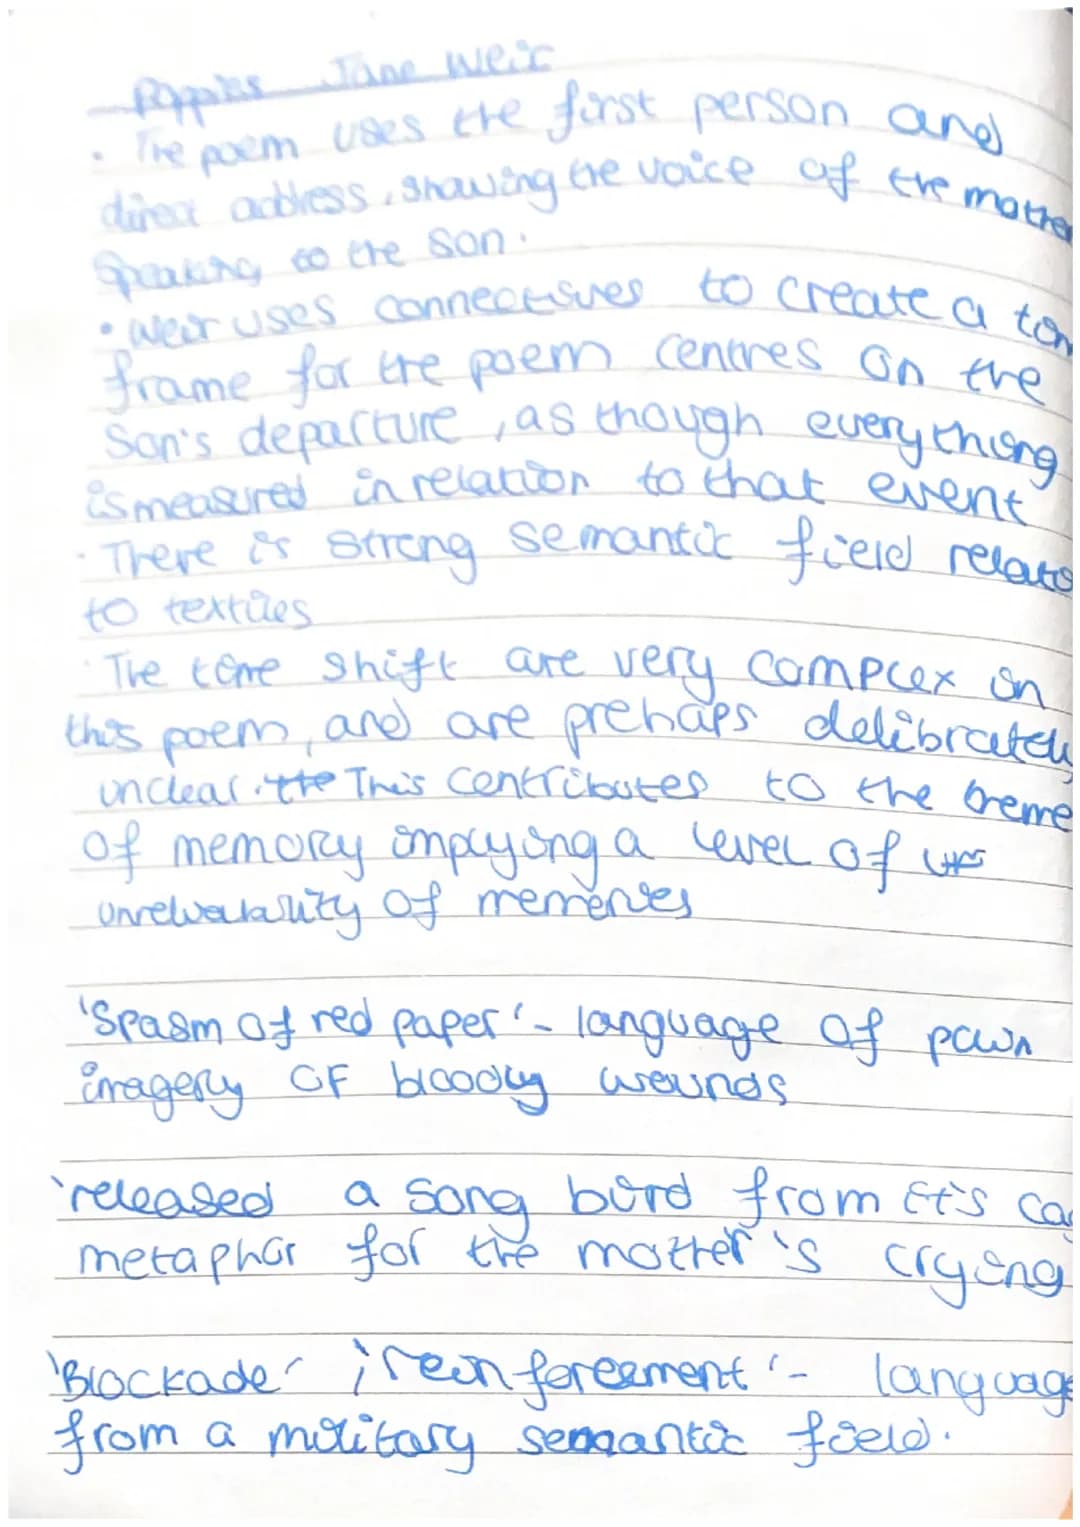 Poppies Jane Weir
• The poem uses the first person and
direct address, showing the voice of the mother
speaking to the son.
• Weir uses connectives to create a
frame for the poem centres on the
son's departure, as though everything
is measured in relation to that event
• There is strong semantic field
to textiles
• The time shift are very complex in
this poem, and are prehaps delibrately
unclear. the This contributes to the theme
of memory implying a level of un
unreliability of memories
'Spasm of red paper' - language of pain
imagery OF bloody wounds
'released a song bird from it's
metaphor for the mother's crying
'Blockade' ; reinforcement' - language
from a military semantic field.